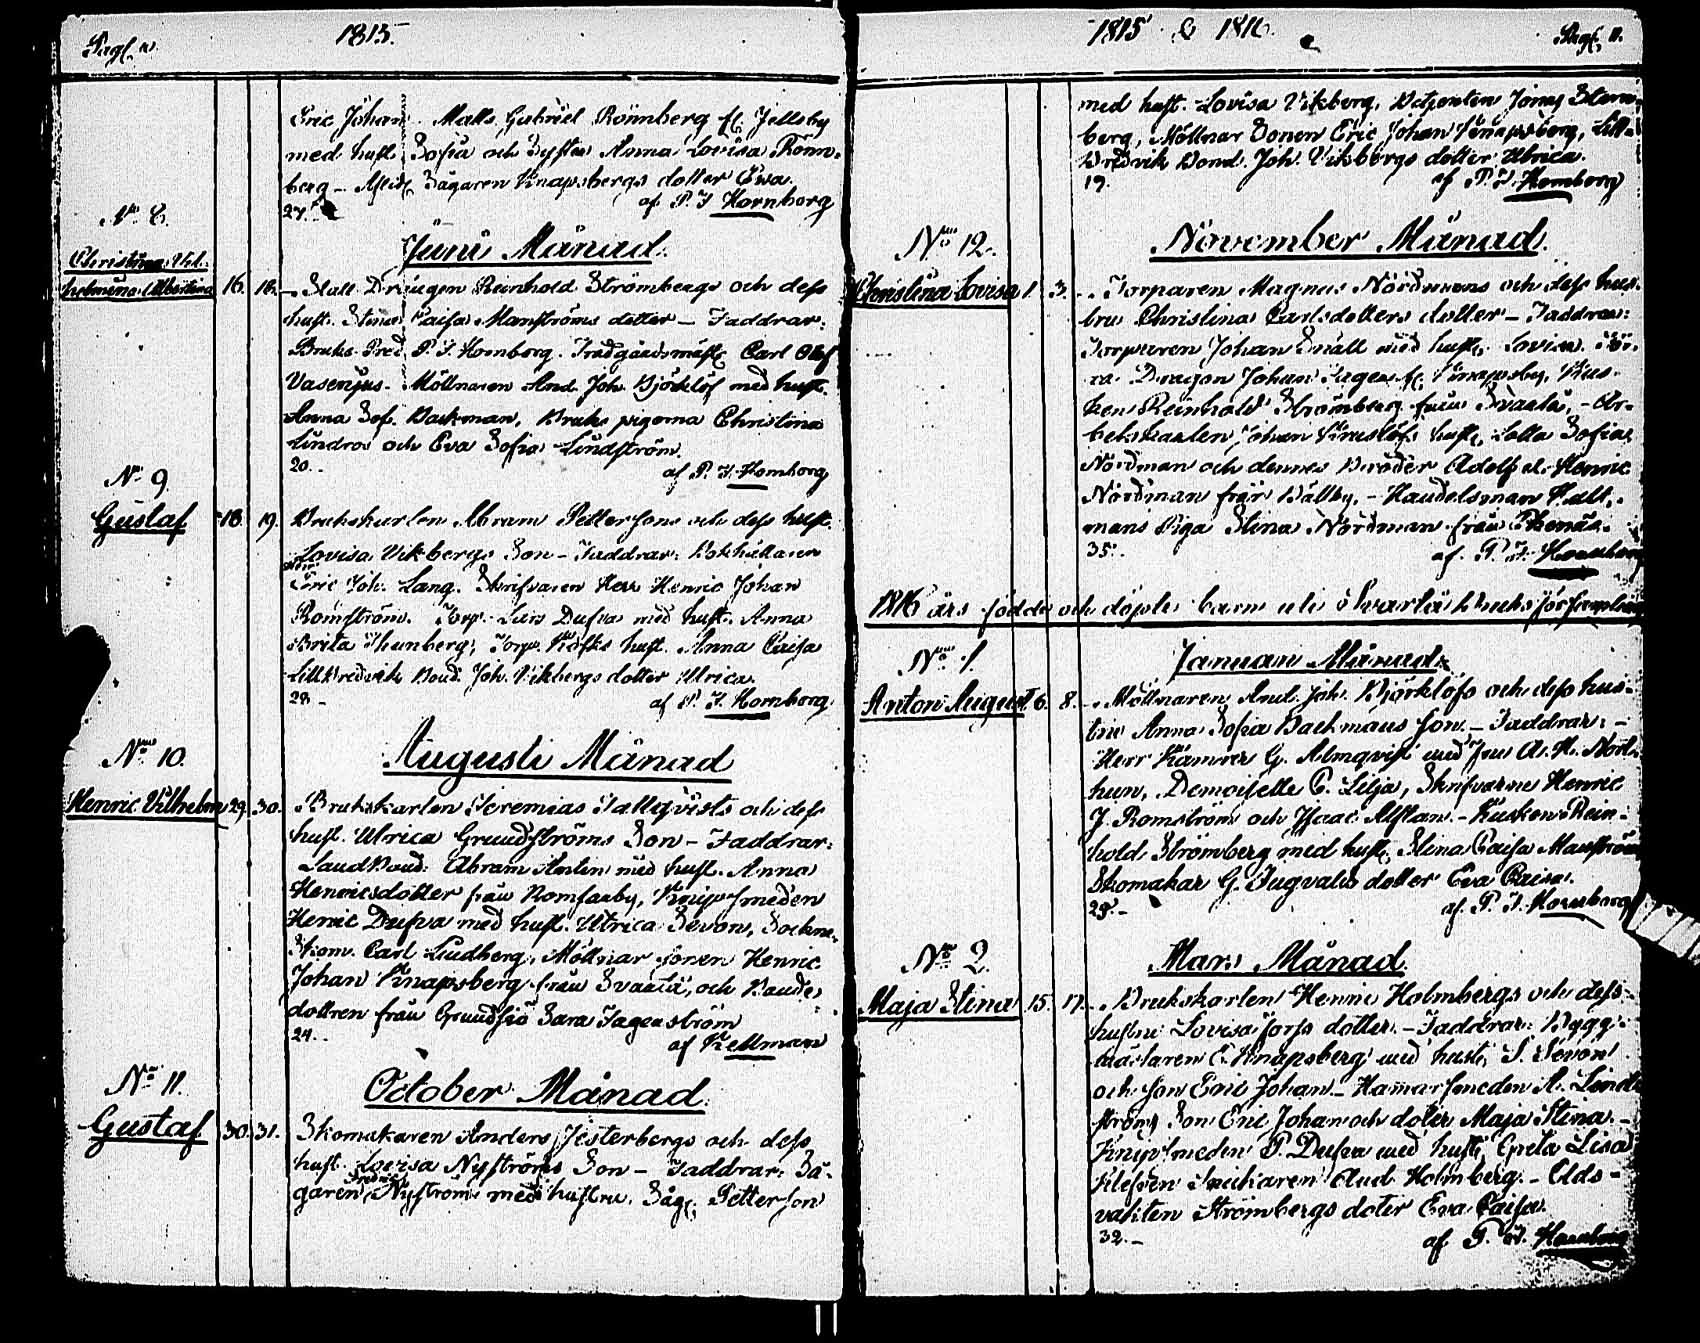 1815.
Eric Johan. Matts Gabriel Rönnberg fr. Jellsby
med hust Sofia och Syster Anna Lovisa Rönn-
berg - Sågaren Knapsbergs dotter Ewa.
27. af P. J. Hornborg
No 8.
Juni Månad.
Christina Vil-
helmina Albertina 16. 18. Stall Drängen Reinhold Strömbergs och dess
hust. Stina Caisa Manströms dotter - Faddrar:
Bruks Pred P. J. Hornborg. Trädgårdsmäst. Carl Olof
Vasenjus. Möllnaren And. Joh. Björklöf med hust.
Anna Sof. Backman, Bruks pigorna Christina
Lindros och Eva Sofia Lindström.
20. af P. J. Hornborg
No 9
Gustaf 18 19. Brukskarlen Abram Pettersons och dess hust.
Lovisa Vikbergs Son - Faddrar: Bokhållaren
Eric Joh. Lang. Skrifvaren Herr Henric Johan
Romström. Torp. Lars Dufva med hust. Anna
Brita Thunberg; Torp. hust. Anna Caisa
Lill Bredvik Bond. Joh. Vikbergs dotter Ulrica.
28. af P. J. Hornborg.
No 10.
Augusti Månad
Henric Vilhelm 29. 30. Brukskarlen Jeremias Tallqvists och dess
hust. Ulrica Grundströms Son - Faddrar:
Landbond. Abram Malin med hust. Anna
Henricsdotter från Romsarby, Knipsmeden
Henric Dufva med hust. Ulrica Sevon, Sockne-
Skom. Carl Lindberg, Möllnar sonen Henric
Johan Knapsberg från Svartå, och Bonde-
dottren från Grundsjö Sara Fagerström
24. af Kellman
No 11.
October Månad.
Gustaf 30. 31. Skomakaren Anders Jesterbergs och dess
hust. Lovisa Nyströms Son - Faddrar: Så-
garen Fredric Nyström med hustru. Såg. Petterson
1815 & 1816. Pag. 11.
med hust. Lovisa Vikberg, Jonas Stern-
berg, Möllnar Sonen Eric Johan Knapsberg, Lill-
Bredvik Bond. Joh. Vikbergs dotter Ulrica.
19. af P. J. Hornborg
No 12.
November Månad.
Christina Lovisa 1. 3. Torparen Magnus Nordmans och dess hus-
tru Christina Carlsdotters dotter - Faddrar:
Torparen Johan Snäll med hust. Lovisa.
Dragon Johan Fager fr. Knapsby, Kus-
ken Reinhold Strömberg från Svartå, - Ar-
betskarlen Johan hust. Lotta Sofia
Nordman och dennes Bröder Adolf o. Henric
Nordman från Bålby, - Handelsman Hall-
mans Piga Stina Nordman från Ekenäs.
35. af P. J. Hornborg
1816 års födde och döpte barn uti Svartå Bruks församling
No 1.
Januari Månad.
Anton August 6. 8. Möllnaren And. Joh. Björklöfs och dess hus-
tru Anna Sofia Backmans son. - Faddrar: -
Herr Kamrer G. Almqvist med Fru A. H. Nord-
hun, Demoiselle C. Lilja, Skrifvarne Henric
J. Romström och Isaac Alftan. - Kusken Rein-
hold Strömberg med hust. Stina Caisa Manström
Skomakar G. Ingvalds dotter Eva Caisa.
28. - af P. J. Hornborg
No 2.
Mars Månad.
Maja Stina 15. 17. Brukskarlen Henric Holmbergs och dess
hustru Lovisa Jorps dotter. - Faddrar: Bygg-
mästaren C. Knapsberg med hust. S. Sevon
och son Eric Johan - Hamarsmeden A. Lind-
ströms Son Eric Johan och doter Maja Stina. -
Knipsmeden P. Dufva med hust. Greta Lisa
Snickaren And Holmberg. - Elds-
vakten Strömbergs doter Eva Caisa.
32. - af P. J. Hornborg